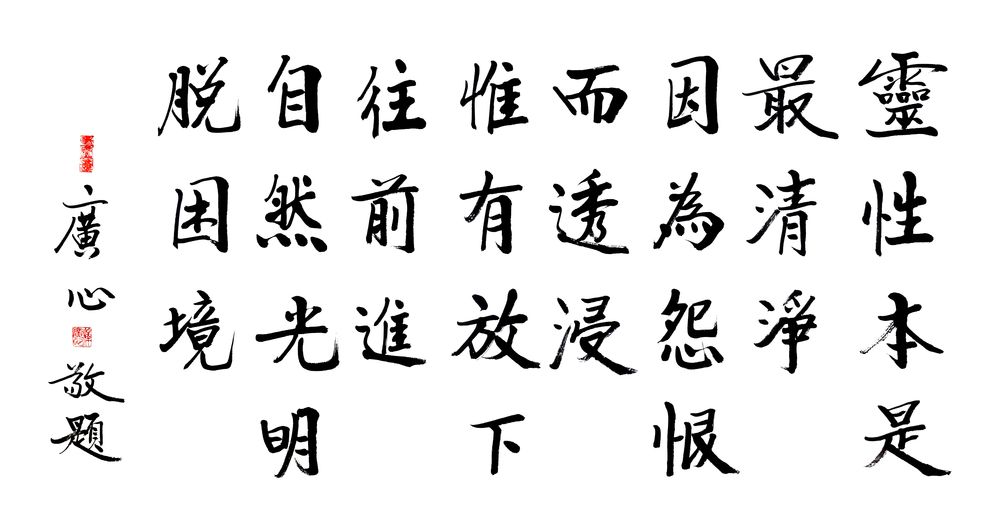 靈性本是
最清淨
因為怨恨
而透浸
惟有放下
往前進
自然光明
脫困境
廣心敬題